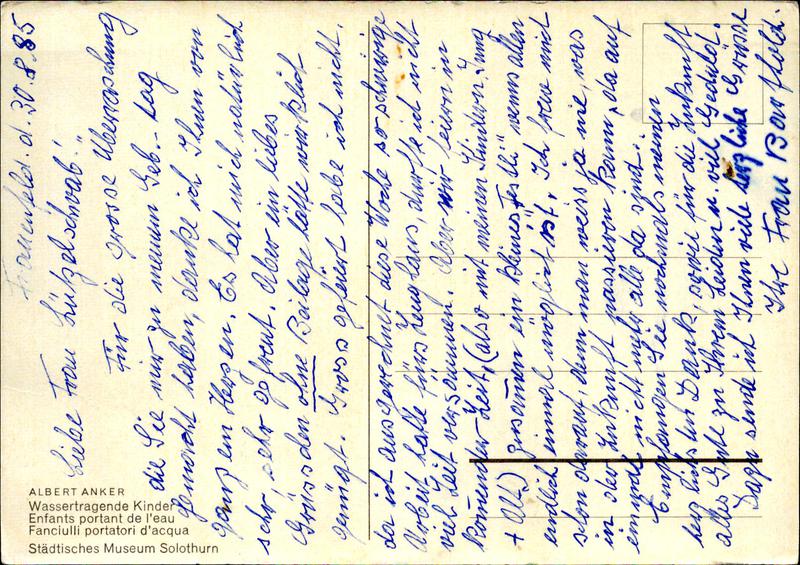 Frauenfeld. d. 30.8.85
Liebe Frau Lützelschwab!
Für die grosse Überraschung
die Sie mir zu meinem Geb.-tag
gemacht haben, danke ich Ihnen von
ganzem Herzen. Es hat mich natürlich
sehr, sehr gefreut. Aber ein liebes
Grüssden ohne Beilage hätte wirklich
genügt. Gross gefeiert habe ich nicht.
da ich ausgerechnet diese Woche so schwierige
Arbeit hatte fürs Zeughaus, durfte ich nicht
viel Zeit versäumen. Aber wir feiern in
kommender Zeit, (also mit meinen Kindern, Jung
+ Alt) zusammen ein kleines Festli wenns allen
endlich einmal möglich ist. Ich freue mich
schon darauf, denn man weiss ja nie, was
in der Zukunft passieren kann, da auf
einmal nicht mehr alle da sind.
Empfangen Sie nochmals meinen
herzlichsten Dank, sowie für die Zukunft
alles Gute zu Ihrem Leiden u. viel Geduld.
Dazu sende ich Ihnen viele herzliche Grüsse
Ihre Frau
ALBERT ANKER
Wassertragende Kinder
Enfants portant de l'eau
Fanciulli portatori d'acqua
Städtisches Museum Solothurn